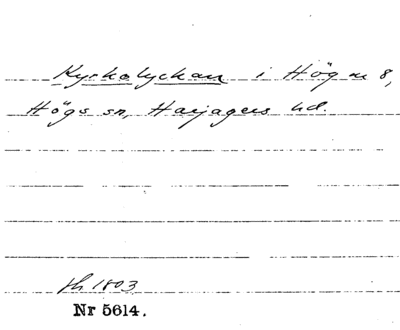 Kyrkolyckan i Hög nr 8,
Högs sn, Harjagers hd.
sh 1803
Nr 5614.